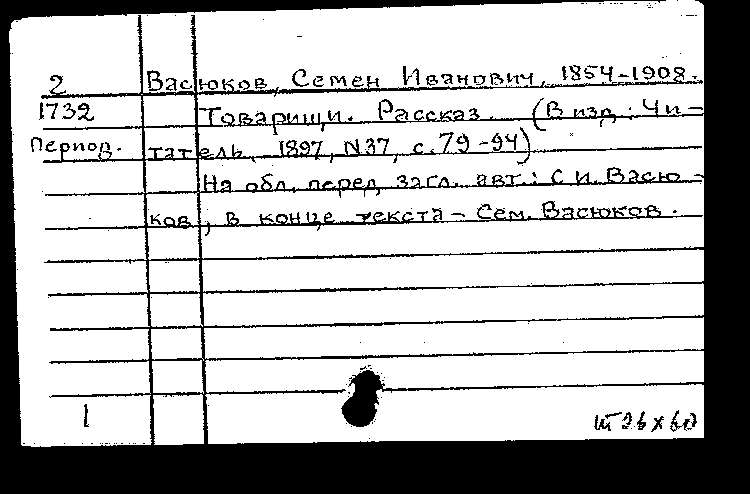 2 Васюков, Семен Иванович, 1854-1908.
1732 Товарищи. Рассказ. (В изд.: Чи-
Период. татель, 1897, N37, с.79-94)
На обл. перед загл. авт.: С.И. Васю-
ков, в конце текста - Сем. Васюков.
1